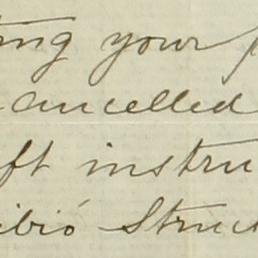 ting your
cancelled
ft instru
ibió Struc